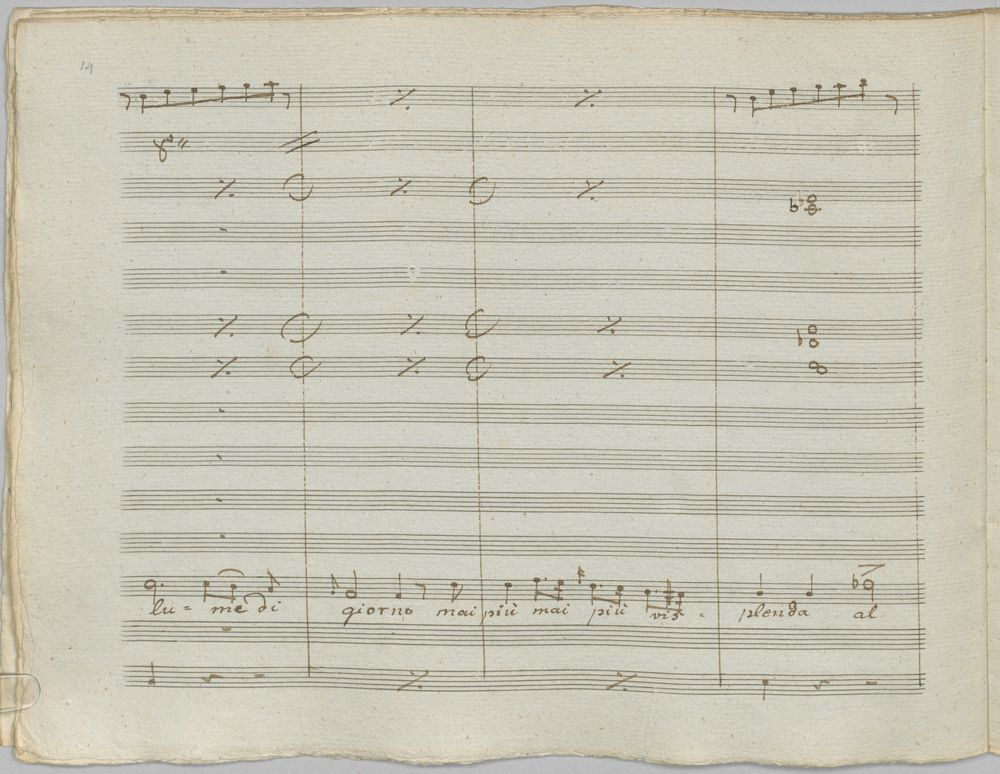 14
8va
lu = me di giorno mai più mai più vis - plenda al